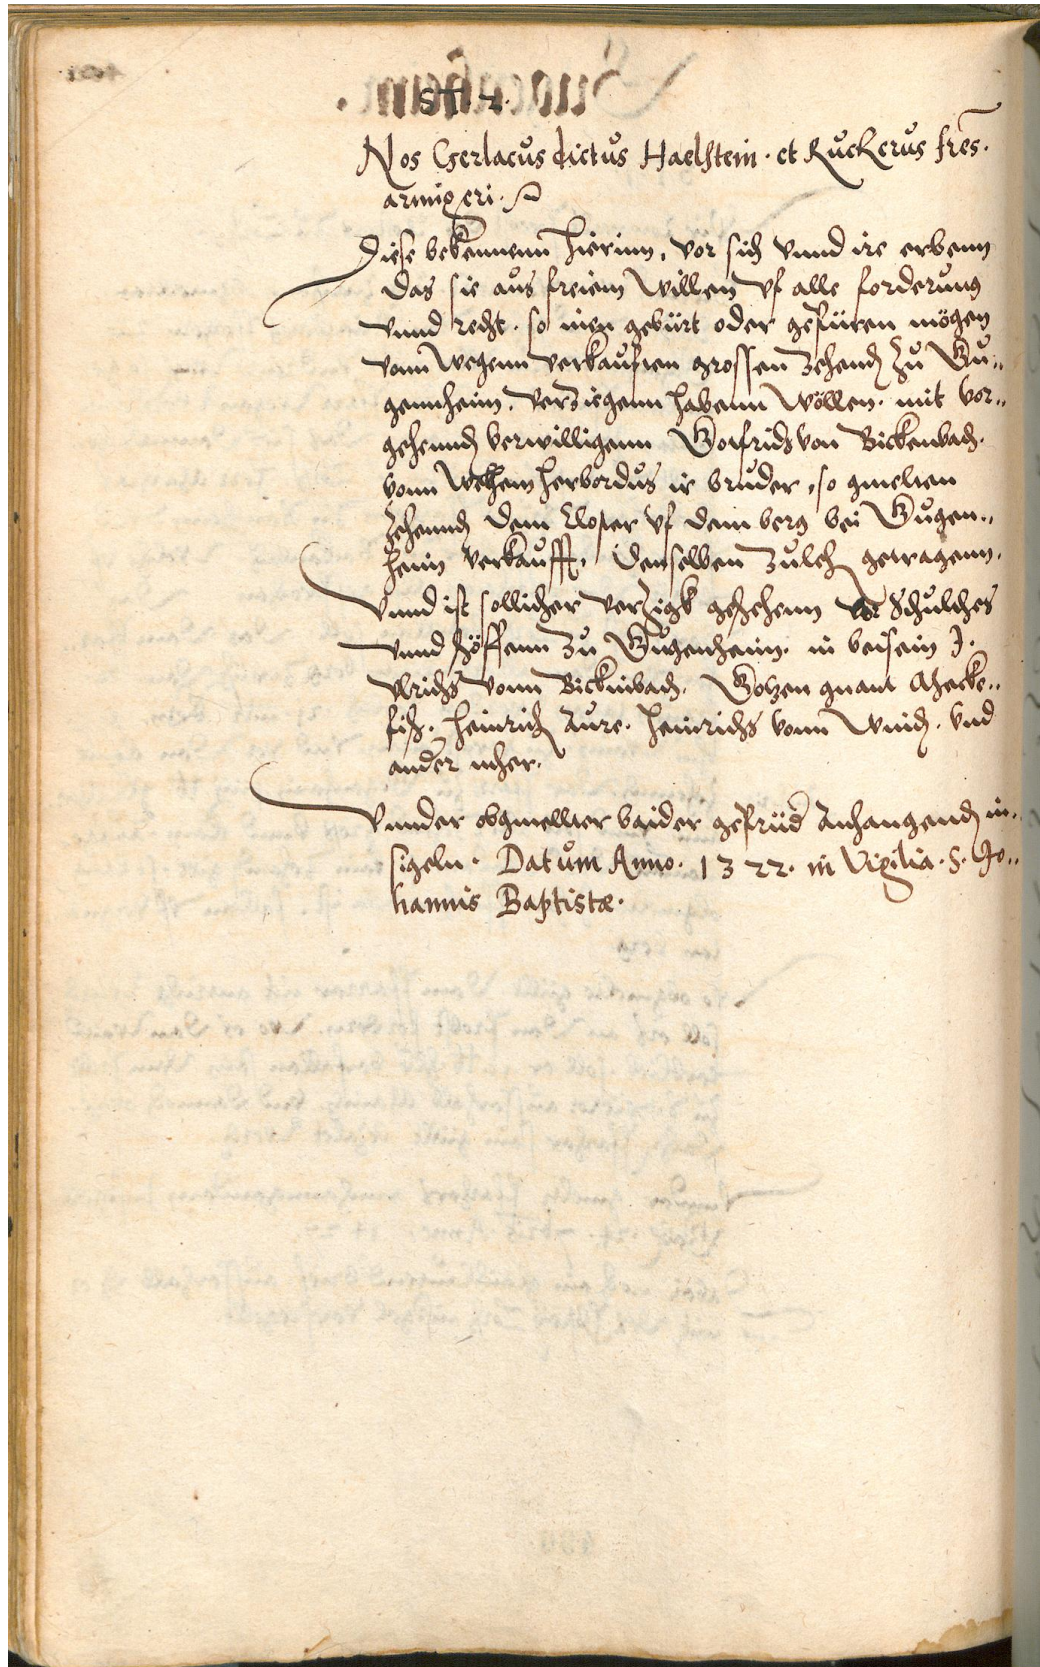 Nos Gerlacus dictus Haelstein · et Ruckerus fres ·
armigeri ·
Diese bekennenn hierinn, vor sich vnnd ire erbenn
das sie aus freiem willen vf alle forderung
vnnd recht · so inen gebürt oder gefüren mögen
vonn wegenn verkauften grossen zehends zu Gu¨
gennheim, verziegenn habenn wöllen · mit vor¨
gehennds verwilligenn Gotfrids von Bickenbach ·
vonn welchem Herbordus ir bruder, so gmelten
zehennds dem Closter vf dem berg bei Gugen¨
heim verkaufft, denselben zulehen getragenn ·
Vnnd ist sollicher verzigk geschehenn vor Schulthes
vnnd schöffenn zu Gugenheim · in beisein J ·
Vlrichs vonn Bickinbach · Gotzen gnant
fisch · Heinrich Aure · Heinrichs vonn · vnd
ander meher ·
Vnnder obgmellter baider gefrüd anhangends in¨
sigeln · Datum Anno · 1322 · in Vigilia · S · Jo¨
hannis Baptistæ ·